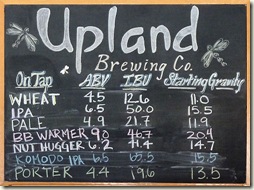 Upland
Brewing Co.
On Tap ABV IBU Starting Gravity
WHEAT 4.5 12.6 11.0
IPA 6.5 50.0 15.5
PALE 4.9 21.7 11.9
BB WARMER 9.0 46.7 20.4
NUT HUGGER 6.2 41.4 14.7
KOMODO IPA 6.5 65.5 15.5
PORTER 4.4 19.6 13.5